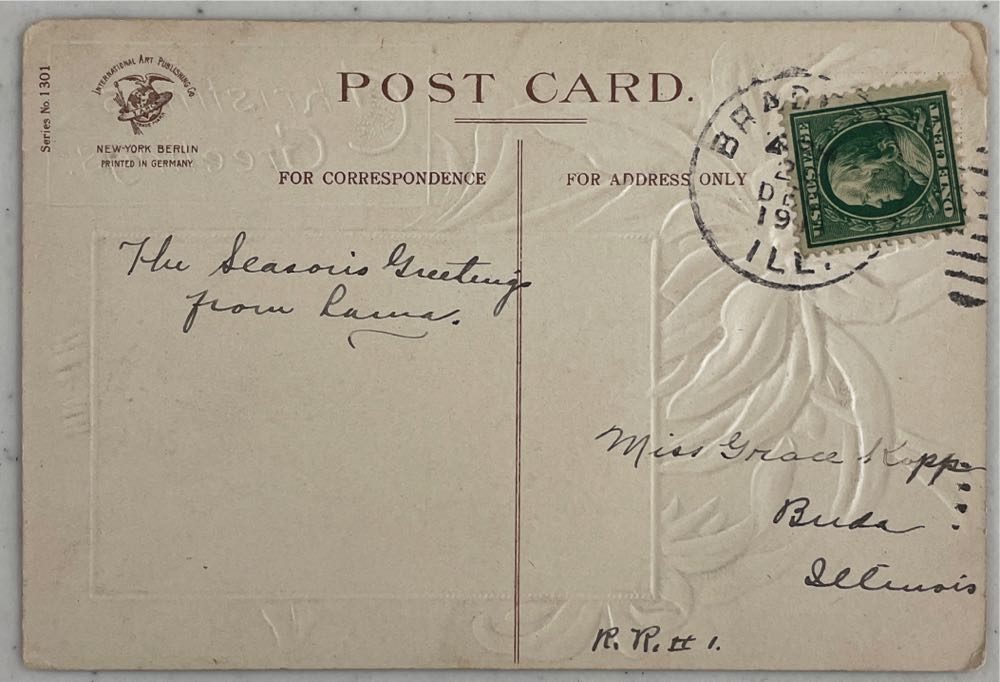 Series No. 1301
INTERNATIONAL ART PUBLISHING CO.
NEW-YORK BERLIN
PRINTED IN GERMANY
POST CARD.
FOR CORRESPONDENCE
FOR ADDRESS ONLY
BRAD
D
19
ILL.
U.S. POSTAGE
ONE CENT
The Season's Greetings
from
Miss Grace Kopp
Buda
Illinois
R. R. # 1.
Christmas
Greetings